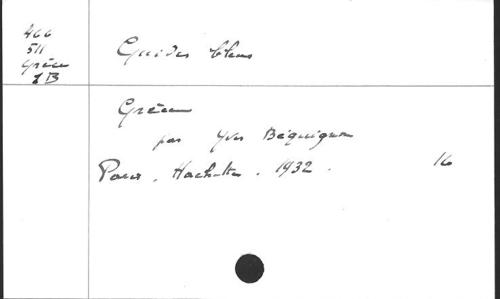 466
511
Grèce
1 B
Guides bleus
Grèce
par Yves Béquignon
Paris. Hachette. 1932.
16